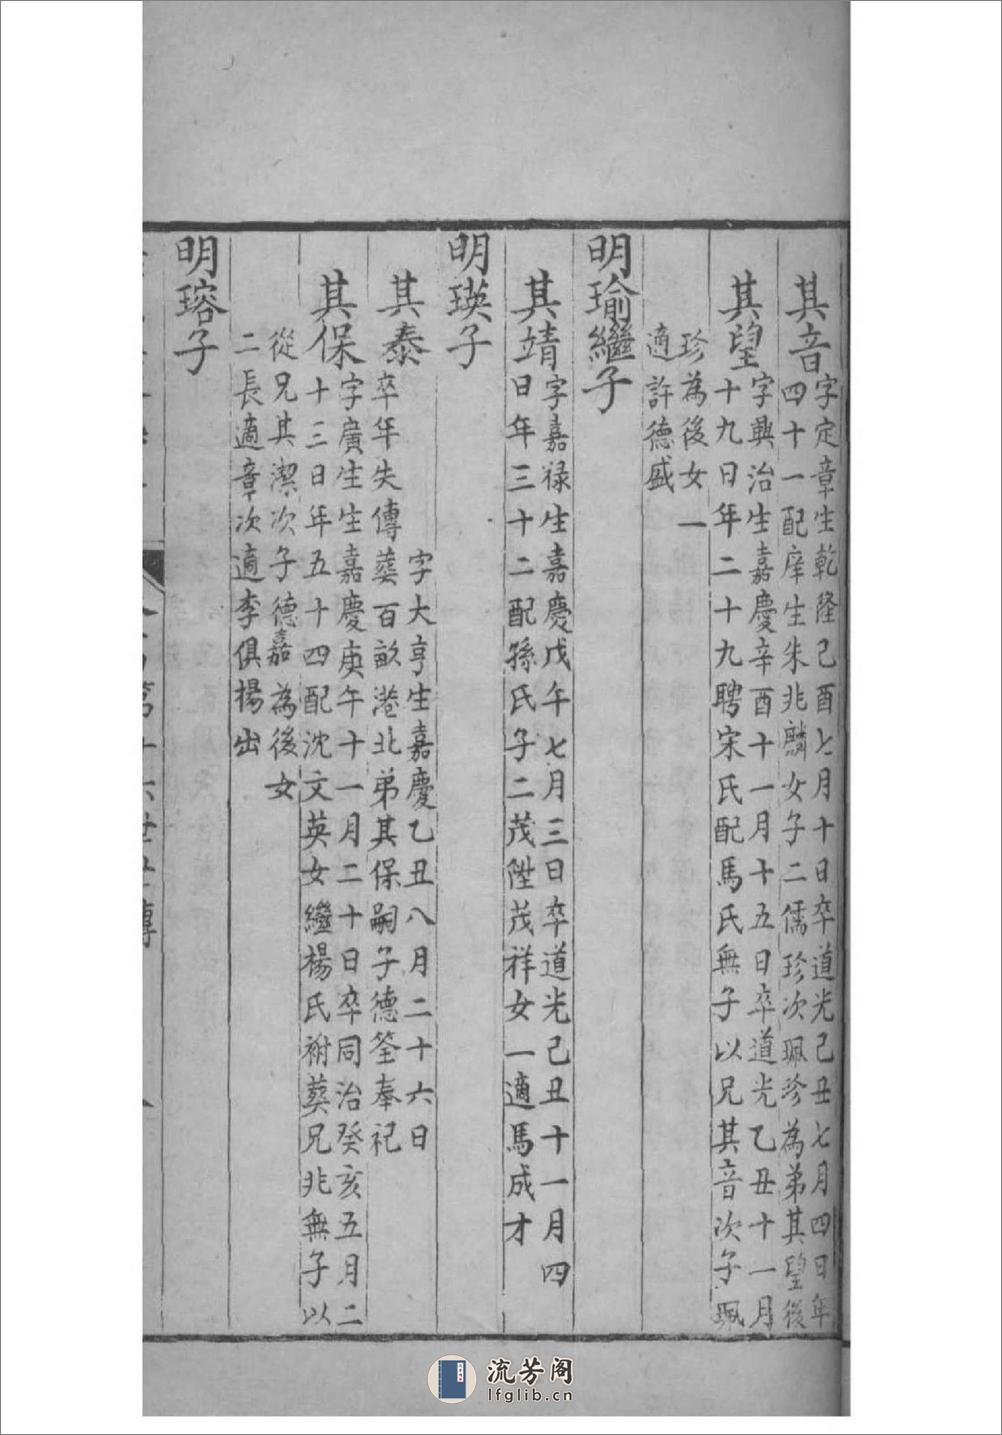 其音
字定章生乾隆己酉七月十日卒道光己丑七月四日年
四十一配庠生朱兆麟女子二儒珍次珮珍為弟其望後
其望
字興治生嘉慶辛酉十一月十五日卒道光乙丑十一月
十九日年二十九聘宋氏配馬氏無子以兄其音次子珮
珍為後女一
適許德盛
明瑜繼子
其靖
字嘉祿生嘉慶戊午七月三日卒道光己丑十一月四
日年三十二配孫氏子二茂陞茂祥女一適馬成才
明瑛子
其泰
字大亨生嘉慶乙丑八月二十六日
卒年失傳葬百畝港北弟其保嗣子德筌奉祀
其保
字廣生生嘉慶庚午十一月二十日卒同治癸亥五月二
十三日年五十四配沈文英女繼楊氏祔葬兄兆無子以
從兄其潔次子德嘉為後女
二長適章次適李俱楊出
明瑢子
第十六世世傳
流芳阁
lfglib.cn